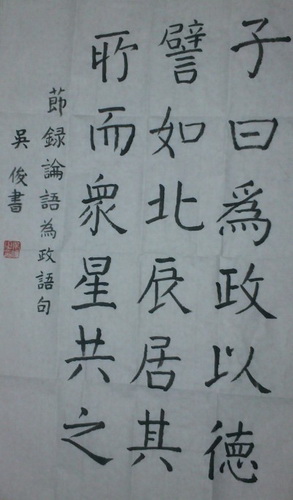 子曰為政以德
譬如北辰居其
所而眾星共之
節録論語為政語句
吳俊書